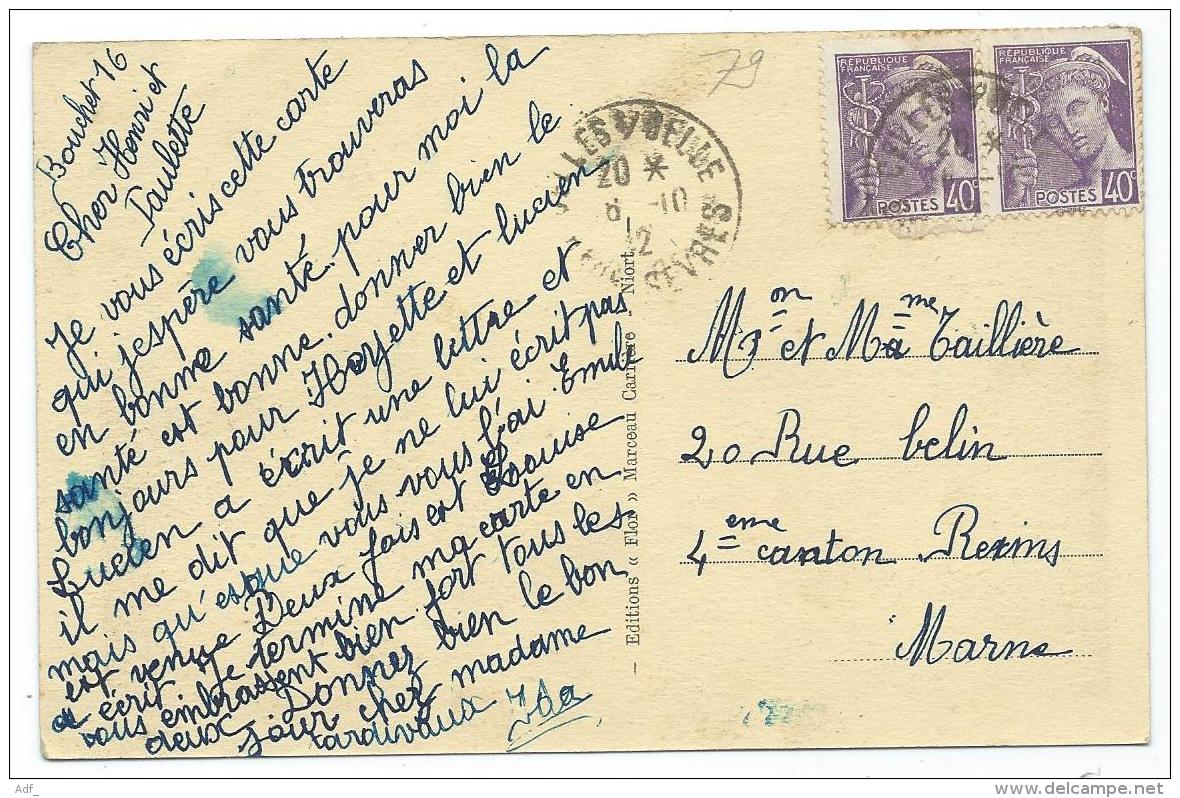 Bouchet 16
Cher Henri et
Paulette
Je vous écris cette carte
qui j'espère vous trouveras
en bonne santé. pour moi la
santé est bonne. donner bien le
bonjours pour Hoyette et lucien
Lucien a écrit une lettre et
il me dit que je ne lui écrit pas
mais qu'es que vous vous l'ai Emile
est venue Deux fois est Louise
a écrit. Je termine ma carte en
vous embrassent bien fort tous les
deux. Donnez bien le bon
jour chez madame
tardivaux Ida
- Editions « Flor » Marceau Carrière - Niort
79
20 *
-10
SEVRES
RÉPUBLIQUE
FRANÇAISE
POSTES 40c
RÉPUBLIQUE
FRANÇAISE
POSTES 40c
Mr on et Ma me Taillière
20 Rue belin
4 eme canton Reims
Marne
Adf_
delcampe.net